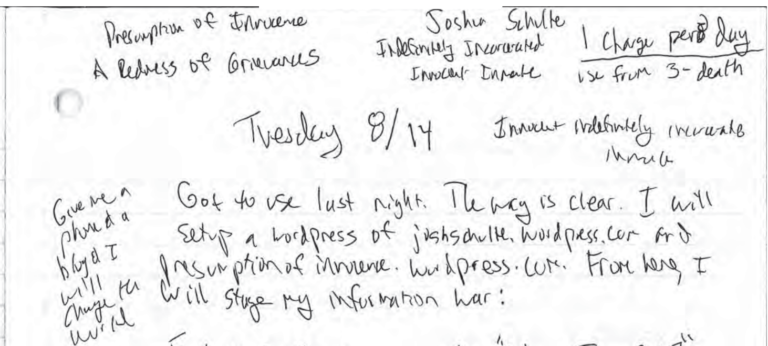 Presumption of Innocence
A Redress of Grievances
Joshua Schulte
Indefinitely Incarcerated
Innocent Inmate
1 charge per day
use from 3-death
Tuesday 8/14
Innocent indefinitely incarcerate
inmate
Give me a
phone & a
blog & I
will
change the
world
Got to use last night. The way is clear. I will
setup a wordpress of joshschulte.wordpress.com and
presumptionofinnocence.wordpress.com. From here, I
will stage my information war: